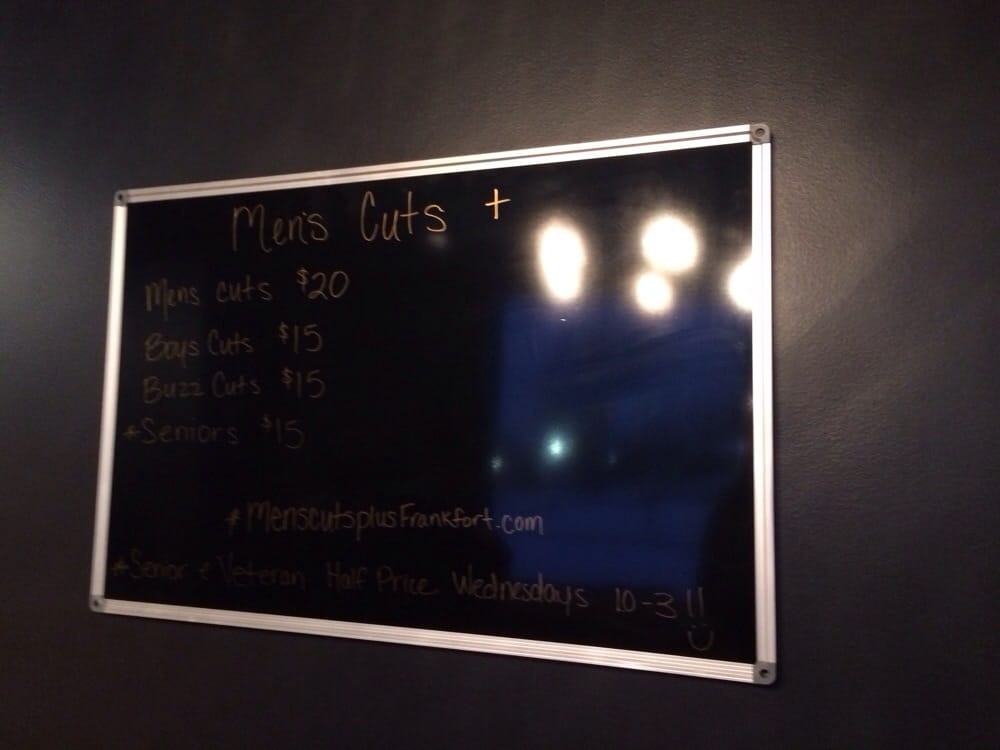 Men's Cuts +
Mens cuts $20
Boys Cuts $15
Buzz Cuts $15
*Seniors $15
* MenscutsplusFrankfort.com
*Senior & Veteran Half Price Wednesdays 10-3!!